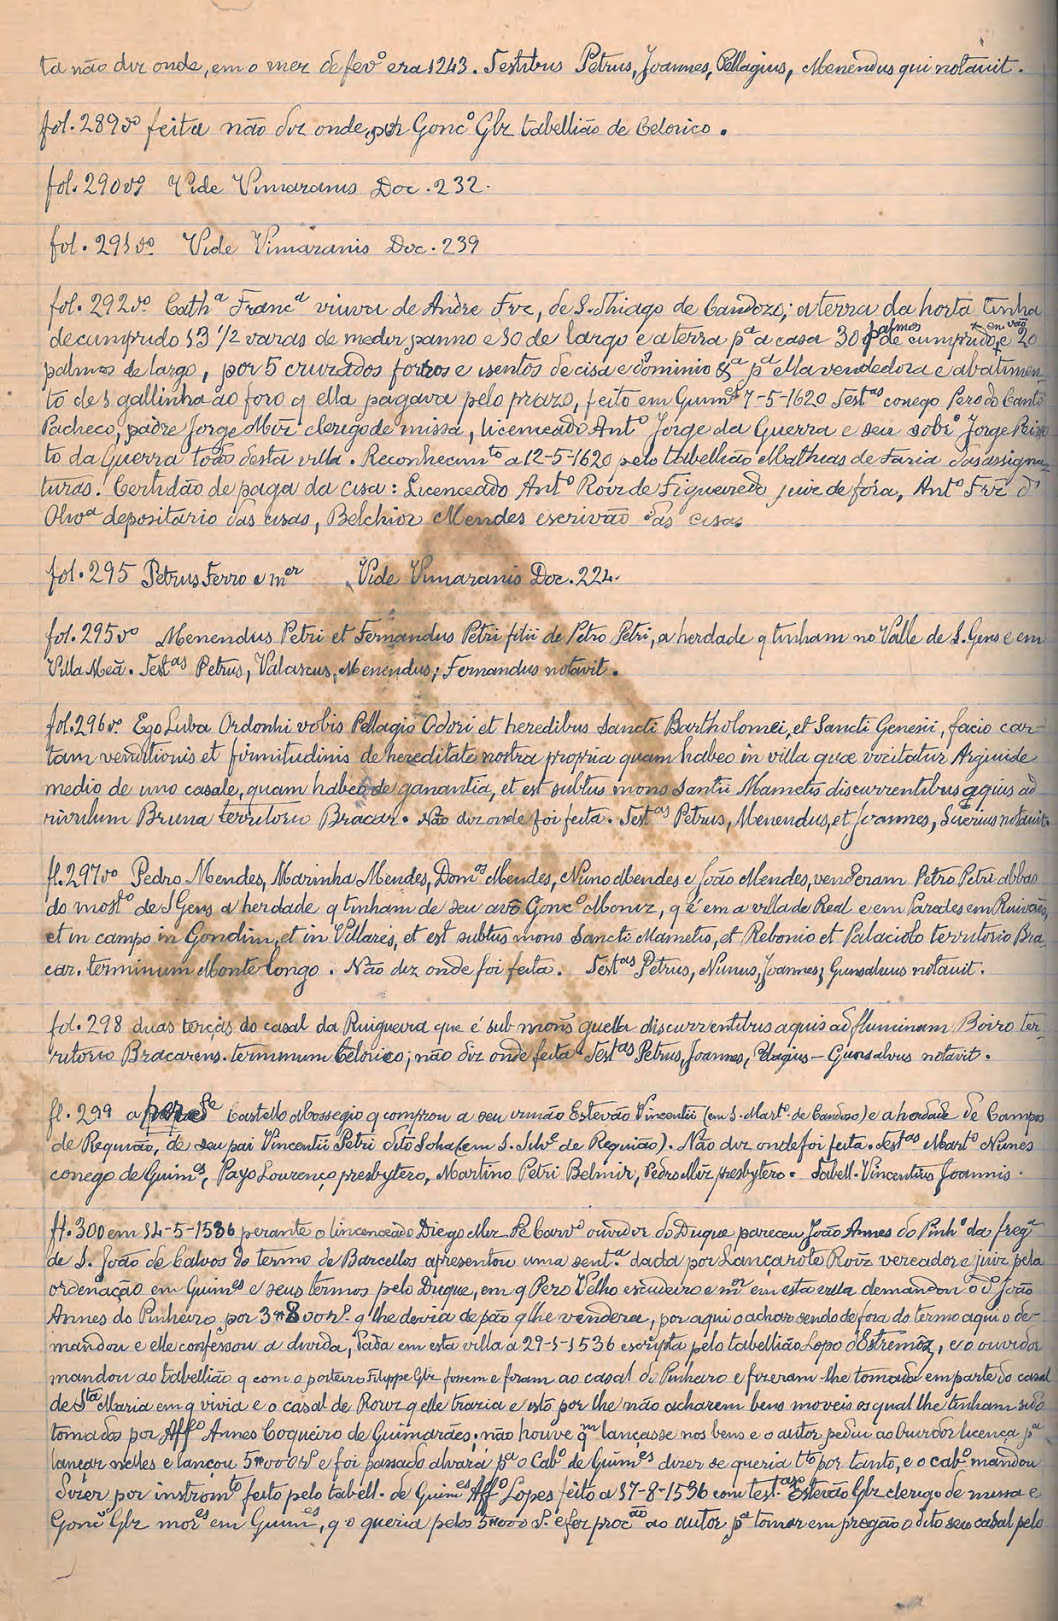 ta não diz onde, em o mez de fevº era 1243. Testibus Petrus, Joannes, Pellagius, Menendus qui notavit.
fol. 289vº feita não diz onde, por Goncº Glz tabellião de Celorico.
fol. 290vº Vide Vimaranis Doc. 232.
fol. 291vº Vide Vimaranis Doc. 239
fol. 292vº Cathª Francª viuva de Andre Frz, de S. Thiago de Candozo; a terra da horta tinha
de cumprido 13 1/2 varas de medir panno e 10 de largo e a terra pª a casa 30 palmos de cumprido, e 20
palmos de largo, por 5 cruzados forros e isentos de cisa e dominio &ª pª ella vendedora e abatimen-
to de 1 gallinha ao foro q ella pagava pelo prazo, feito em Guimes 7-5-1620 Testas conego Pero do Canto
Pacheco, padre Jorge Miz clerigo de missa, licenceado Antº Jorge da Guerra e seu sobº Jorge Peixo-
to da Guerra todos desta villa. Reconhecimto a 12-5-1620 pelo tabellião Mathias de Faria das assigna-
turas. Certidão de paga da cisa: Licenceado Antº Roiz de Figueiredo juiz de fora, Antº Frz d'
Olivª depositario das cisas, Belchior Mendes escrivão das cisas
fol. 295 Petrus Ferro e mer Vide Vimaranis Doc. 224.
fol. 295vº Menendus Petri et Fernandus Petri filii de Petro Petri, a herdade q tinham no Valle de S. Gens e em
Villa Meã. Testas Petrus, Valascus, Menendus; Fernandus notavit.
fol. 296vº Ego Luba Ordonhi vobis Pellagio Odori et heredibus Sancti Bartholomei, et Sancti Genesii, facio car-
tam venditionis et firmitudinis de hereditate nostra propria quam habeo in villa quæ vocitatur Arguide
medio de uno casale, quam habeo de ganantia, et est subtus mons Santii Mametis discurrentibus aquis ad
rivulum Bruna territorio Bracar. Não diz onde foi feita. Testas Petrus, Menendus, et Joannes, Suerius notavit.
fl. 297vº Pedro Mendes, Marinha Mendes, Domos Mendes, Nuno Mendes e João Mendes, venderam Petro Petri abba-
do mostº de S Gens a herdade q tinham de seu avô Goncº Moniz, q é em a villa de Real e em Paredes em Ruivais,
et in campo in Gondim, et in Villares, et est subtus mons Sancti Mametis, et Rebonio et Palaciolo territorio Bra-
car. terminum Monte longo. Não diz onde foi feita. Testas Petrus, Nunus, Joannes; Gunsalvus notavit.
fol. 298 duas terças do casal da Ruigueira que é sub mons quella discurrentibus aquis ad fluminam Boiro ter-
ritorio Bracarens. terminum Celorico; não diz onde feita. Testas Petrus, Joannes, Pelagius – Gunsalvus notavit.
fl. 299 a de Castello Mossegio q comprou a seu irmão Estevão Vincentii (em S. Martº. de Candoso) e a herdade de Campo
de Requião, de seu pai Vincentii Petri dito Soha (em S. Silve de Requião). Não diz onde foi feita. Testas Martº Nunes
conego de Guimes, Payo Lourenço presbytero, Martino Petri Belmir, Pedro Miz presbytero. Tabell. Vincentius Joannis.
fl. 300 em 14-5-1536 perante o lincenceado Diego Miz de Carvº ouvidor do Duque pareceu João Annes do Pinhº da fregª
de S. João de Calvos do termo de Barcellos apresentou uma sentª dada por Lançarote Roiz vereador e juiz pela
ordenação em Guimes e seus termos pelo Duque, em q Pero Velho escudeiro e mor em esta villa demandou o dº João
Annes do Pinheiro por 3#800rs. q lhe devia de pão q lhe vendera, por aqui o achar sendo de fora do termo aqui o de-
mandou e elle confessou a divida, dada em esta villa a 29-1-1536 escripta pelo tabellião Lopo d'Estremoz, e o ouvidor
mandou ao tabellião q com o porteiro Filippe Glz fossem e foram ao casal do Pinheiro e fizeram lhe tomada em parte do casal
de Sta Maria em q vivia e o casal de Roriz q elle trazia e isto por lhe não acharem bens moveis os qual lhe tinham sido
tomados por Affº Annes Coqueiro de Guimarães, não houve qm lançasse nos bens e o autor pediu ao Ouvidor licença pª
lançar nelles e lançou 5#000rs e foi passado alvará pª o Cabº de Guimes dizer se queria tto por tanto, e o cabº mandou
dizer por instromto feito pelo tabell. de Guimes Affº Lopes feito a 17-8-1536 com testas Estevão Glz clerigo de missa e
Goncº Glz mores em Guimes, q o queria pelos 5#000 rs. e foi procão ao autor pª tomar em pregão o dito seu casal pelo